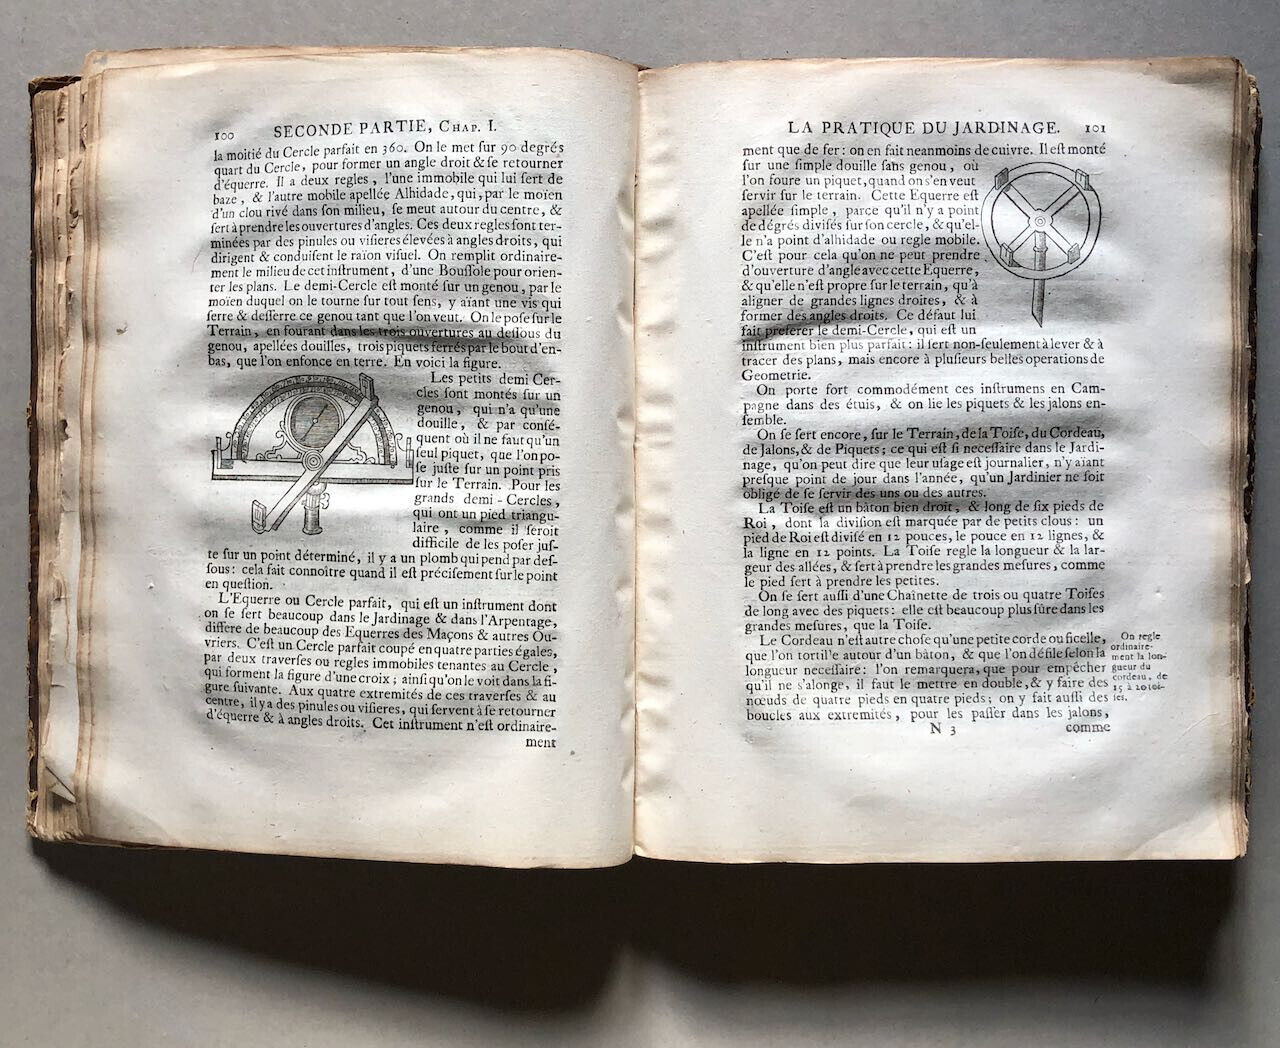 100 SECONDE PARTIE, CHAP. I.
la moitié du Cercle parfait en 360. On le met ſur 90 degrés
quart du Cercle, pour former un angle droit & ſe retourner
d'équerre. Il a deux regles, l'une immobile qui lui ſert de
baze, & l'autre mobile apellée Alhidade, qui, par le moïen
d'un clou rivé dans ſon milieu, ſe meut autour du centre, &
ſert à prendre les ouvertures d'angles. Ces deux regles ſont ter-
minées par des pinules ou viſieres élevées à angles droits, qui
dirigent & conduiſent le raïon viſuel. On remplit ordinaire-
ment le milieu de cet inſtrument, d'une Bouſſole pour orien-
ter les plans. Le demi-Cercle est monté ſur un genou, par le
moïen duquel on le tourne ſur tout ſens, y aïant une vis qui
ſerre & deſſerre ce genou tant que l'on veut. On le poſe ſur le
Terrain, en fourant dans les trois ouvertures au deſſous du
genou, apellées douilles, trois piquets ferrés par le bout d'en-
bas, que l'on enfonce en terre. En voici la figure.
Les petits demi Cer-
cles ſont montés ſur un
genou, qui n'a qu'une
douille, & par conſé-
quent où il ne faut qu'un
ſeul piquet, que l'on po-
ſe juſte ſur un point pris
ſur le Terrain. Pour les
grands demi-Cercles,
qui ont un pied triangu-
laire, comme il ſeroit
difficile de les poſer juſ-
te ſur un point déterminé, il y a un plomb qui pend par deſ-
ſous: cela fait connoître quand il eſt préciſement ſur le point
en queſtion.
L'Equerre ou Cercle parfait, qui eſt un inſtrument dont
on ſe ſert beaucoup dans le Jardinage & dans l'Arpentage,
differe de beaucoup des Equerres des Maçons & autres Ou-
vriers. C'eſt un Cercle parfait coupé en quatre parties égales,
par deux traverſes ou regles immobiles tenantes au Cercle,
qui forment la figure d'une croix; ainſi qu'on le voit dans la fi-
gure ſuivante. Aux quatre extremités de ces traverſes & au
centre, il y a des pinules ou viſieres, qui ſervent à ſe retourner
d'équerre & à angles droits. Cet inſtrument n'eſt ordinaire-
ment
LA PRATIQUE DU JARDINAGE. 101
ment que de fer: on en fait neanmoins de cuivre. Il eſt monté
ſur une ſimple douille ſans genou, où
l'on foure un piquet, quand on s'en veut
ſervir ſur le terrain. Cette Equerre eſt
apellée ſimple, parce qu'il n'y a point
de dégrés diviſés ſur ſon cercle, & qu'el-
le n'a point d'alhidade ou regle mobile.
C'eſt pour cela qu'on ne peut prendre
d'ouverture d'angle avec cette Equerre,
& qu'elle n'eſt propre ſur le terrain, qu'à
aligner de grandes lignes droites, & à
former des angles droits. Ce défaut lui
fait preferer le demi-Cercle, qui est un
inſtrument bien plus parfait: il ſert non-ſeulement à lever & à
tracer des plans, mais encore à pluſieurs belles operations de
Geometrie.
On porte fort commodément ces inſtrumens en Cam-
pagne dans des étuis, & on lie les piquets & les jalons en-
ſemble.
On ſe ſert encore, ſur le Terrain, de la Toiſe, du Cordeau,
de Jalons, & de Piquets; ce qui eſt ſi neceſſaire dans le Jardi-
nage, qu'on peut dire que leur uſage eſt journalier, n'y aïant
preſque point de jour dans l'année, qu'un Jardinier ne ſoit
obligé de ſe ſervir des uns ou des autres.
La Toiſe eſt un bâton bien droit, & long de ſix pieds de
Roi, dont la diviſion eſt marquée par de petits clous: un
pied de Roi eſt diviſé en 12 pouces, le pouce en 12 lignes, &
la ligne en 12 points. La Toiſe regle la longueur & la lar-
geur des allées, & ſert à prendre les grandes meſures, comme
le pied ſert à prendre les petites.
On ſe ſert auſſi d'une Chaînette de trois ou quatre Toiſes
de long avec des piquets: elle eſt beaucoup plus ſûre dans les
grandes meſures, que la Toiſe.
Le Cordeau n'eſt autre choſe qu'une petite corde ou ficelle,
que l'on tortil'e autour d'un bâton, & que l'on défile ſelon la
longueur neceſſaire: l'on remarquera, que pour empêcher
qu'il ne s'alonge, il faut le mettre en double, & y faire des
nœuds de quatre pieds en quatre pieds; on y fait auſſi des
boucles aux extremités, pour les paſſer dans les jalons,
On regle
ordinaire-
ment la lon-
gueur du
cordeau, de
15 à 20 toi-
ſes.
N 3 comme